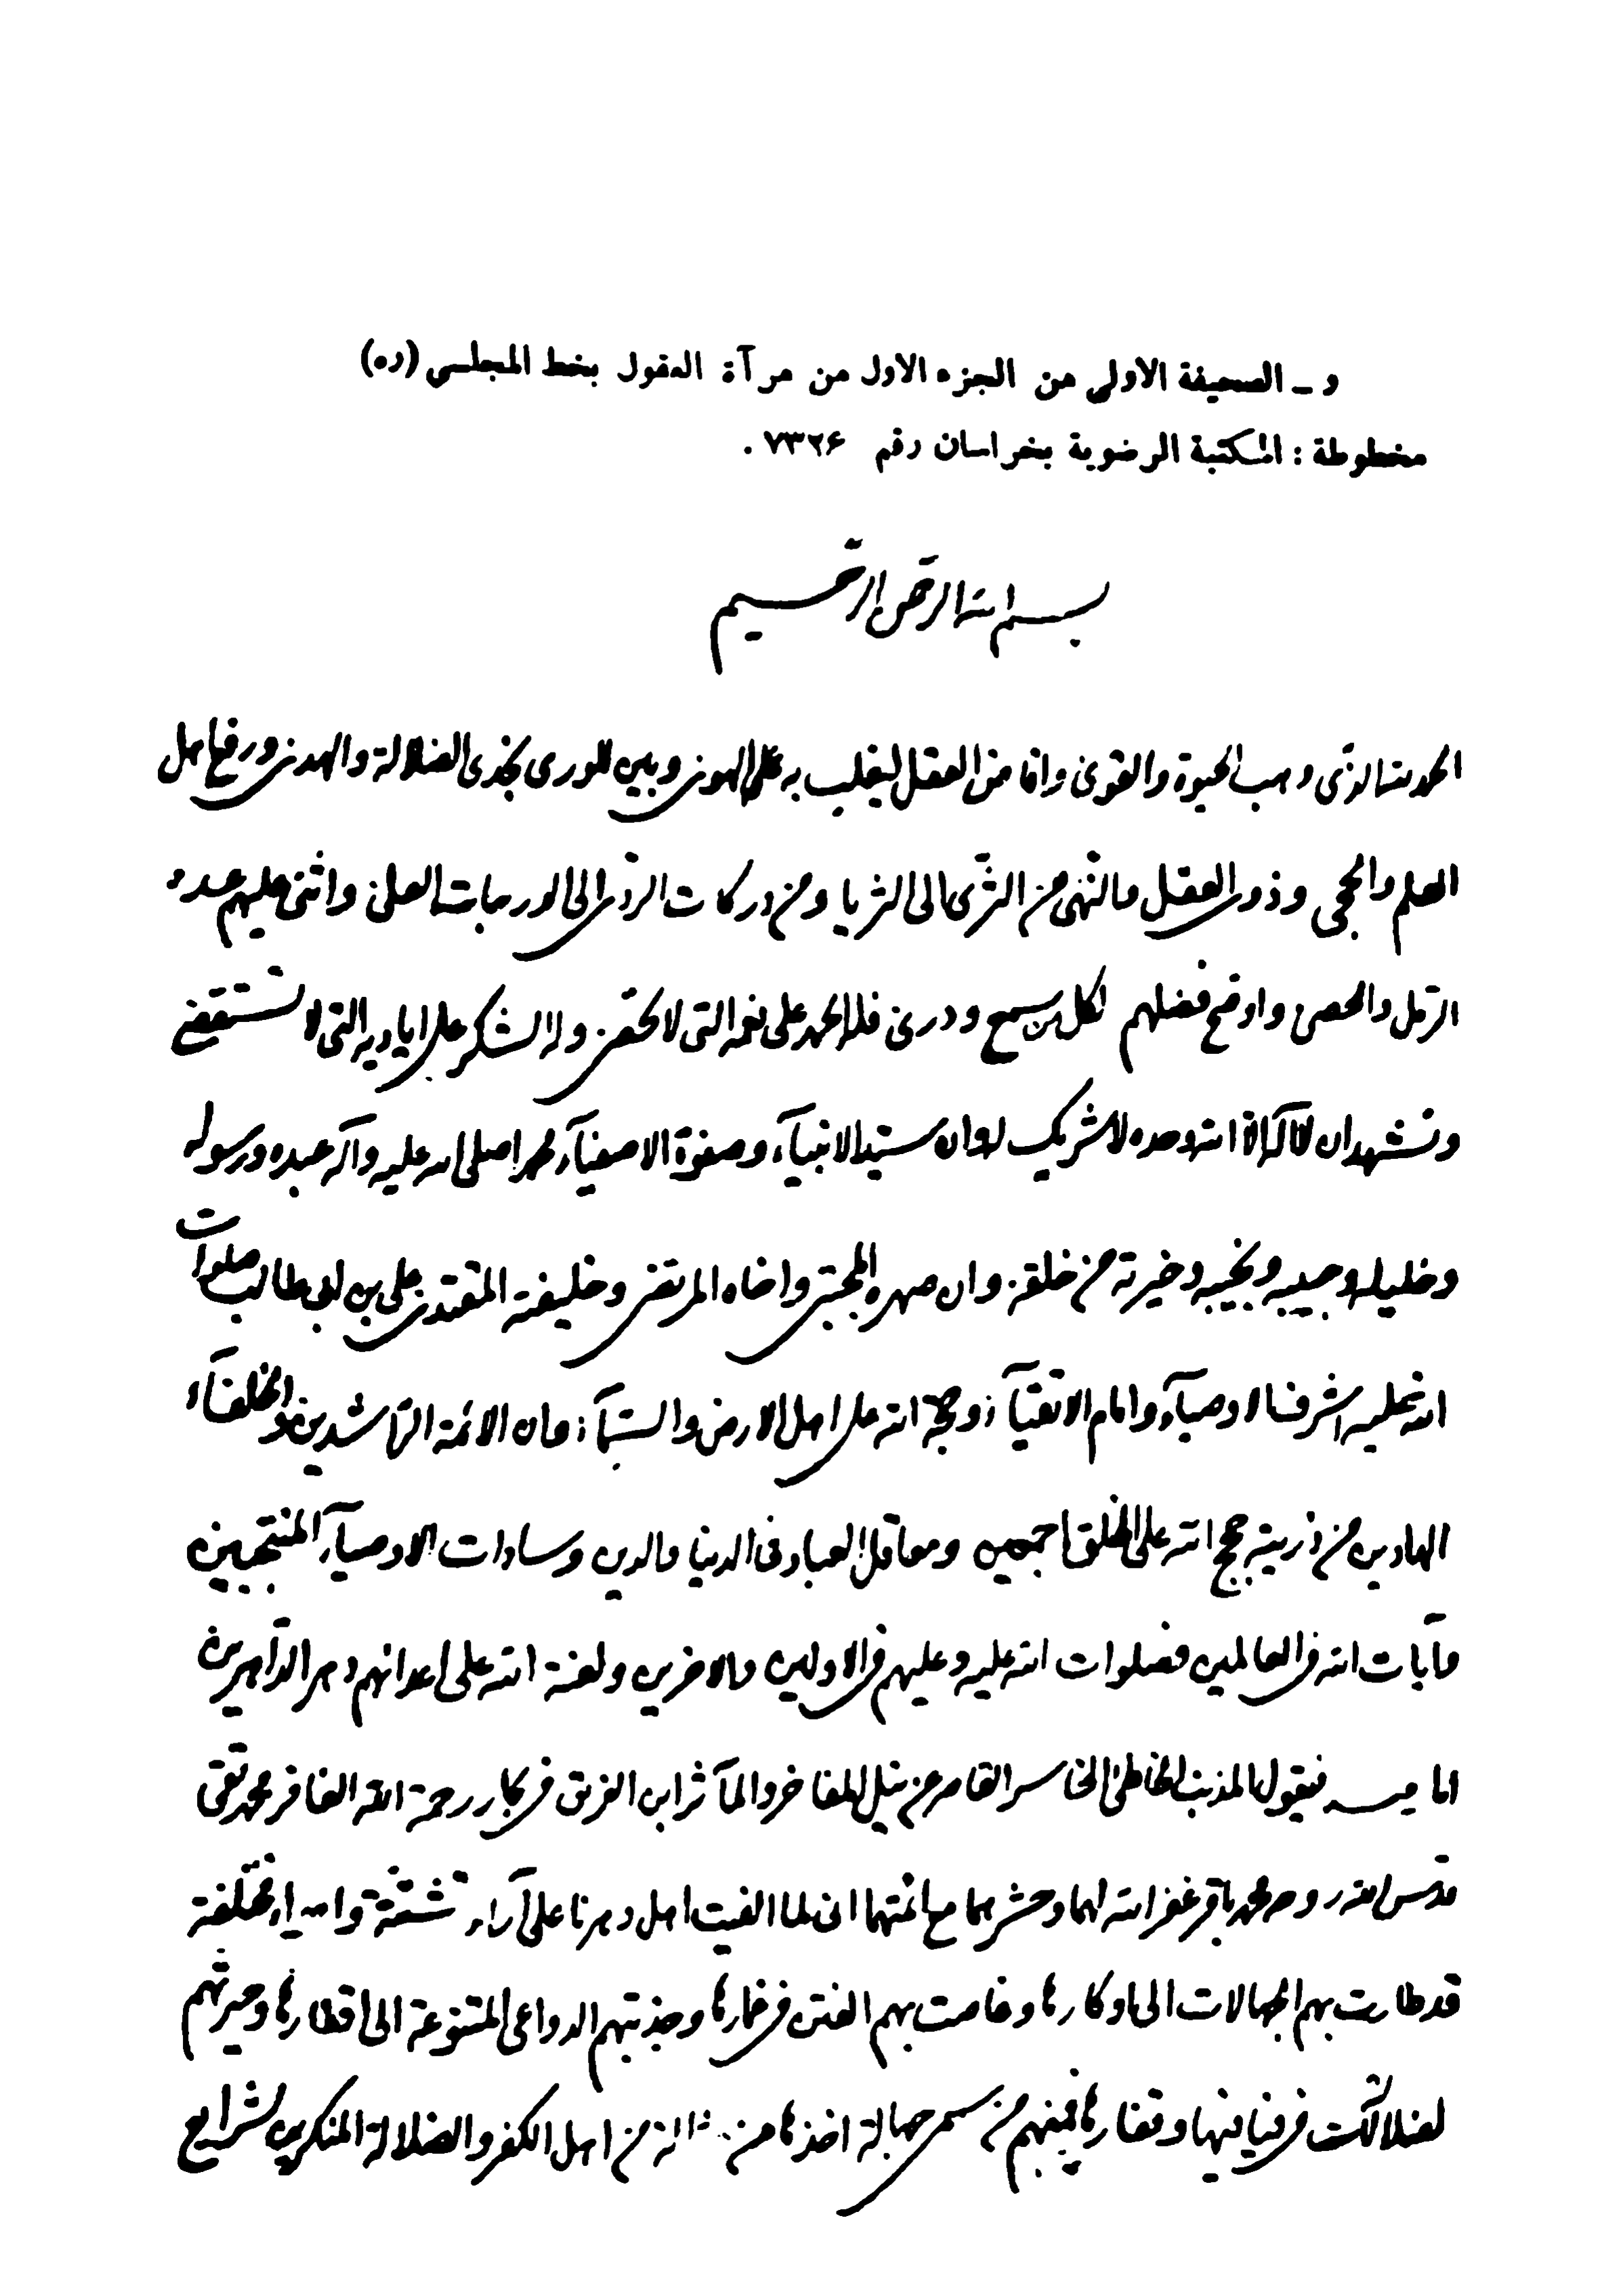 و ـ الصحيفة الاولى من الجزء الاول من مرآة العقول بخط المجلسي (ره)
مخطوطة : المكتبة الرضوية بخراسان رقم ٧٣٢۶ .
بسم الله الرحمن الرحيم
الحمد لله الذى وهب الحيوة والقوى وافاض العقل ليغلب به على الهوى وبين للورى نجدى الضلالة والهدى ورفع اهل
العلم والحجى وذوى العقل والنهى من الثرى الى الثريا ومن دركات الردى الى الدرجات العلى واثنى عليهم عدد
الرمل والحصى واوضح فضلهم لكل من سمع ودرى فله الحمد على نعمه التى لا تحصى وله الشكر على اياديه التى لا تستقصى
ونشهد ان لا آله الا الله وحده لا شريك له وان سيد الانبيآء وصفوة الاصفيآء محمدا صلى الله عليه وآله عبده ورسوله
وخليله وحبيبه ونجيبه وخيرته من خلقه وان صهره المجتبى واخاه المرتضى وخليفته المقتدى على بن ابى طالب صلوات
الله عليه اشرف الاوصيآء وامام الاتقيآء وحجة الله على اهل الارض والسمآء وان الائمة الراشدين والخلفآء
الهادين من ذريته حجج الله على الخلق اجمعين ومعاقل العباد فى الدنيا والدين وسادات الاوصيآء المنتجبين
وآيات الله فى العالمين فصلوات الله عليه وعليهم فى الاولين والاخرين ولعنة الله على اعدائهم دهر الداهرين
اما بعد فيقول المذنب الخاطئ الخاسر القاصر عن نيل المفاخر والمآثر ابن الغريق فى بحار رحمة الله الغافر محمد تقى
قدس الله روحه محمد باقر غفر الله لهما وحشرهما مع ائمتهما انى لما الفيت اهل دهرنا على آراء متشتتة واهواء مختلفة
قد طارت بهم الجهالات الى اوكارها وغاصت بهم الفتن فى غمارها وجذبتهم الدواعى المتنوعة الى اقطارها وحيرتهم
الضلالت فى فيافيها وقفارها فمنهم من سمى جهالة اخذها من اهل الكفر والضلالة المنكرين لشرايع